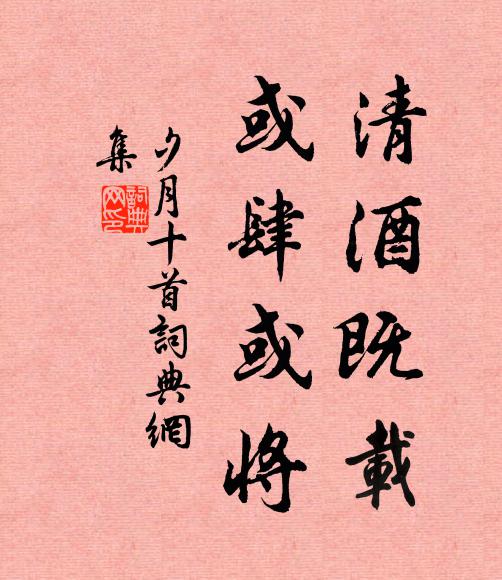 清酒既載
或肆或將
夕月十首詞典網
集
詞典
网印